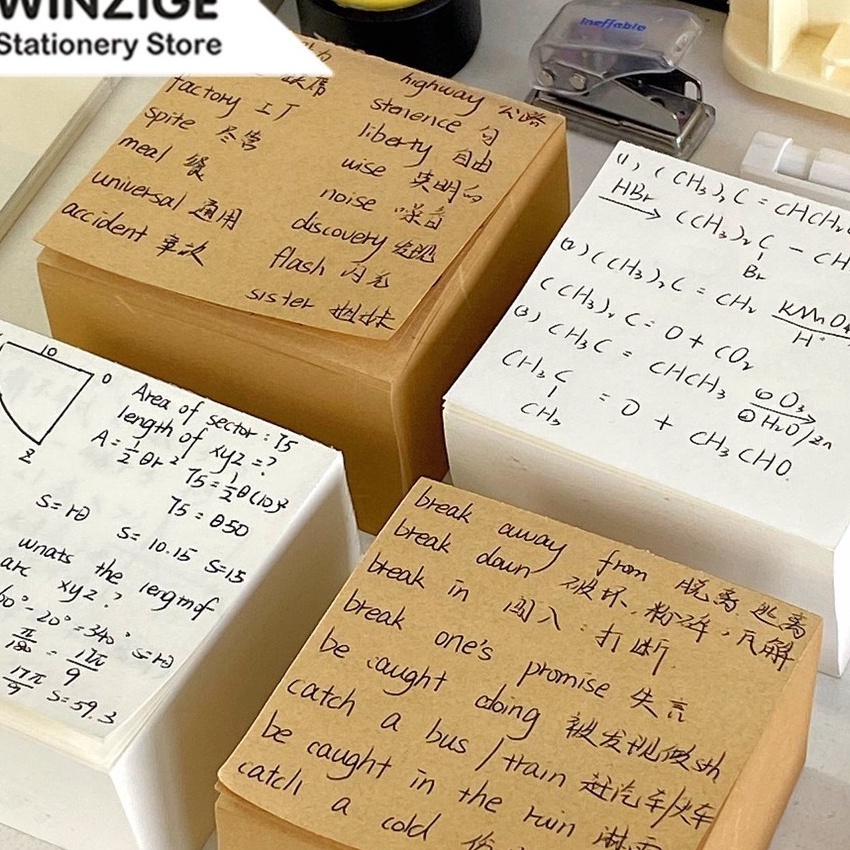 WINZIGE
Stationery Store
Ineffable
factory 工厂
spite 尽管
meal 餐
universal 通用
accident 事故
highway 公路
stenence 句
liberty 自由
wise 英明的
noise 噪音
discovery 发现
flash 闪
sister 姐妹
(1) (CH₃)₂C = CHCH₂
HBr
(CH₃)₂C - CH
Br
(2) (CH₃)₂C = CH₂ KMnO₄
H⁺
(CH₃)₂C = O + CO₂
(3) CH₃C = CHCH₃ ① O₃
② H₂O/Zn
CH₃C = O + CH₃CHO
CH₃
10
O
Z
Area of sector: 75
length of xyz = ?
A = ½θr²
75 = ½θ(10)²
75 = θ50
S = rθ
S = 10·1.5 S=15
wnats the lengmof
arc xyz?
60° - 20° = 340° S = rθ
π/180 = 17π/9
17π/9 S = 59.3
break away from 脱离.逃离
break down 破坏,粉碎,瓦解
break in 闯入:打断
break one's promise 失言
be caught doing 被发现做sth
catch a bus / train 赶汽车/火车
be caught in the rain 淋雨
catch a cold